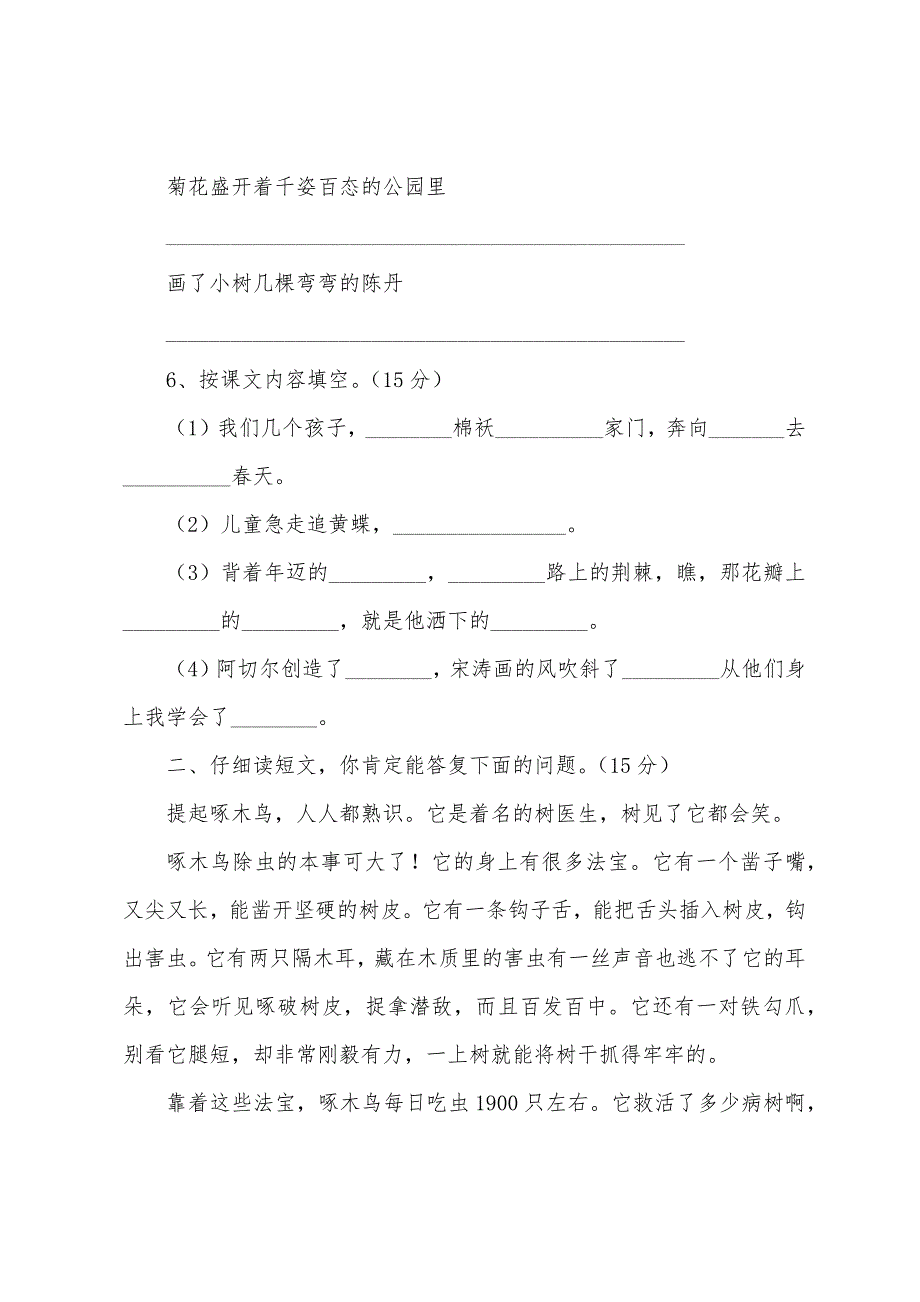 菊花盛开着千姿百态的公园里
________________________________________________
画了小树几棵弯弯的陈丹
________________________________________________
6、按课文内容填空。（15 分）
（1）我们几个孩子，________棉袄__________家门，奔向_______去
__________春天。
（2）儿童急走追黄蝶，________________。
（3）背着年迈的_________，_________路上的荆棘，瞧，那花瓣上
_________的_________，就是他洒下的_________。
（4）阿切尔创造了________，宋涛画的风吹斜了_________从他们身
上我学会了________。
二、仔细读短文，你肯定能答复下面的问题。（15 分）
提起啄木鸟，人人都熟识。它是着名的树医生，树见了它都会笑。
啄木鸟除虫的本事可大了！它的身上有很多法宝。它有一个凿子嘴，
又尖又长，能凿开坚硬的树皮。它有一条钩子舌，能把舌头插入树皮，钩
出害虫。它有两只隔木耳，藏在木质里的害虫有一丝声音也逃不了它的耳
朵，它会听见啄破树皮，捉拿潜敌，而且百发百中。它还有一对铁勾爪，
别看它腿短，却非常刚毅有力，一上树就能将树干抓得牢牢的。
靠着这些法宝，啄木鸟每日吃虫 1900 只左右。它救活了多少病树啊，